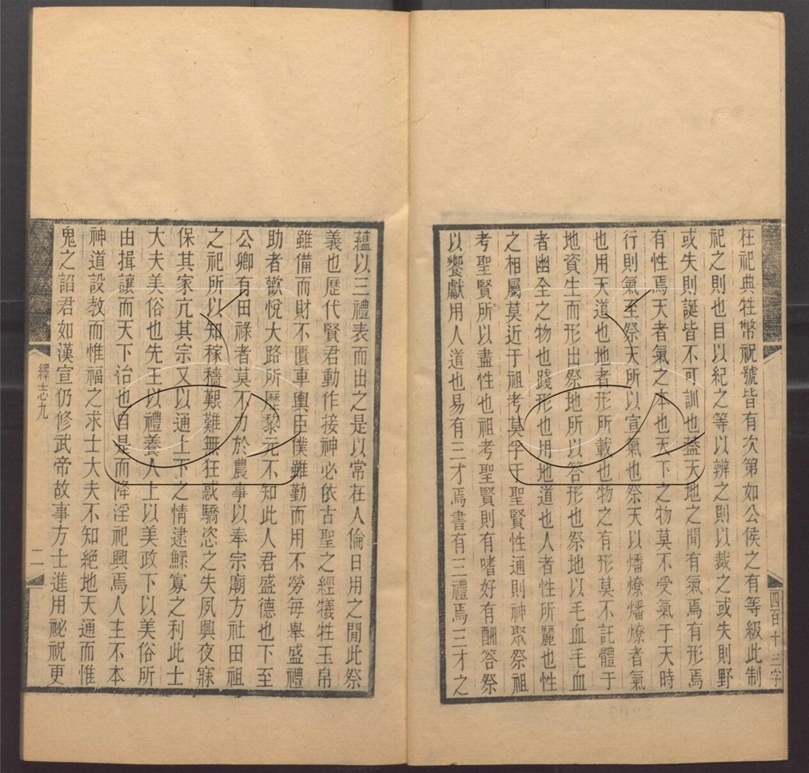 在祀典牲幣祝號皆有次第如公侯之有等級此制
祀之則也目以紀之等以辨之則以裁之或失則野
或失則誕皆不可訓也蓋天地之閒有氣焉有形焉
有性焉天者氣之本也天下之物莫不受氣于天時
行則氣至祭天所以宣氣也祭天以燔燎燔燎者氣
也用天道也地者形所載也物之有形莫不託體于
地資生而形出祭地所以答形也祭地以毛血毛血
者幽全之物也踐形也用地道也人者性所麗也性
之相屬莫近于祖考莫孚于聖賢性通則神聚祭祖
考聖賢所以盡性也祖考聖賢則有嗜好有酬答祭
以饗獻用人道也易有三才焉書有三禮焉三才之
四百十三字
蘊以三禮表而出之是以常在人倫日用之閒此祭
義也歷代賢君動作接神必依古聖之經犧牲玉帛
雖備而財不匱車輿臣僕雖勤而用不勞每舉盛禮
助者歡悅大路所歷黎元不知此人君盛德也下至
公卿有田祿者莫不力於農事以奉宗廟方社田祖
之祀所以知稼穡艱難無狂惑驕恣之失夙興夜寐
保其家亢其宗又以通上下之情逮鰥寡之利此士
大夫美俗也先王以禮養人上以美政下以美俗所
由揖讓而天下治也自是而降淫祀興焉人主不本
神道設教而惟福之求士大夫不知絶地天通而惟
鬼之諂君如漢宣仍修武帝故事方士進用祕祝更
繹志九
二